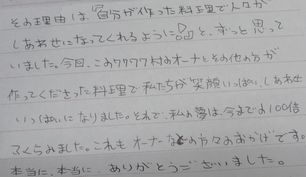 その理由は、「自分が作った料理で人々が
しあわせになってくれるように」と、ずっと思って
いました。今回、このワクワク村のオーナとその他の方が
作ってくださった料理で私たちが笑顔いっぱい、しあわせ
いっぱいになりました。それで、私の夢は、今までの100倍
ふくらみました。これもオーナーなどの方々のおかげです。
本当に、本当に、ありがとうございました。